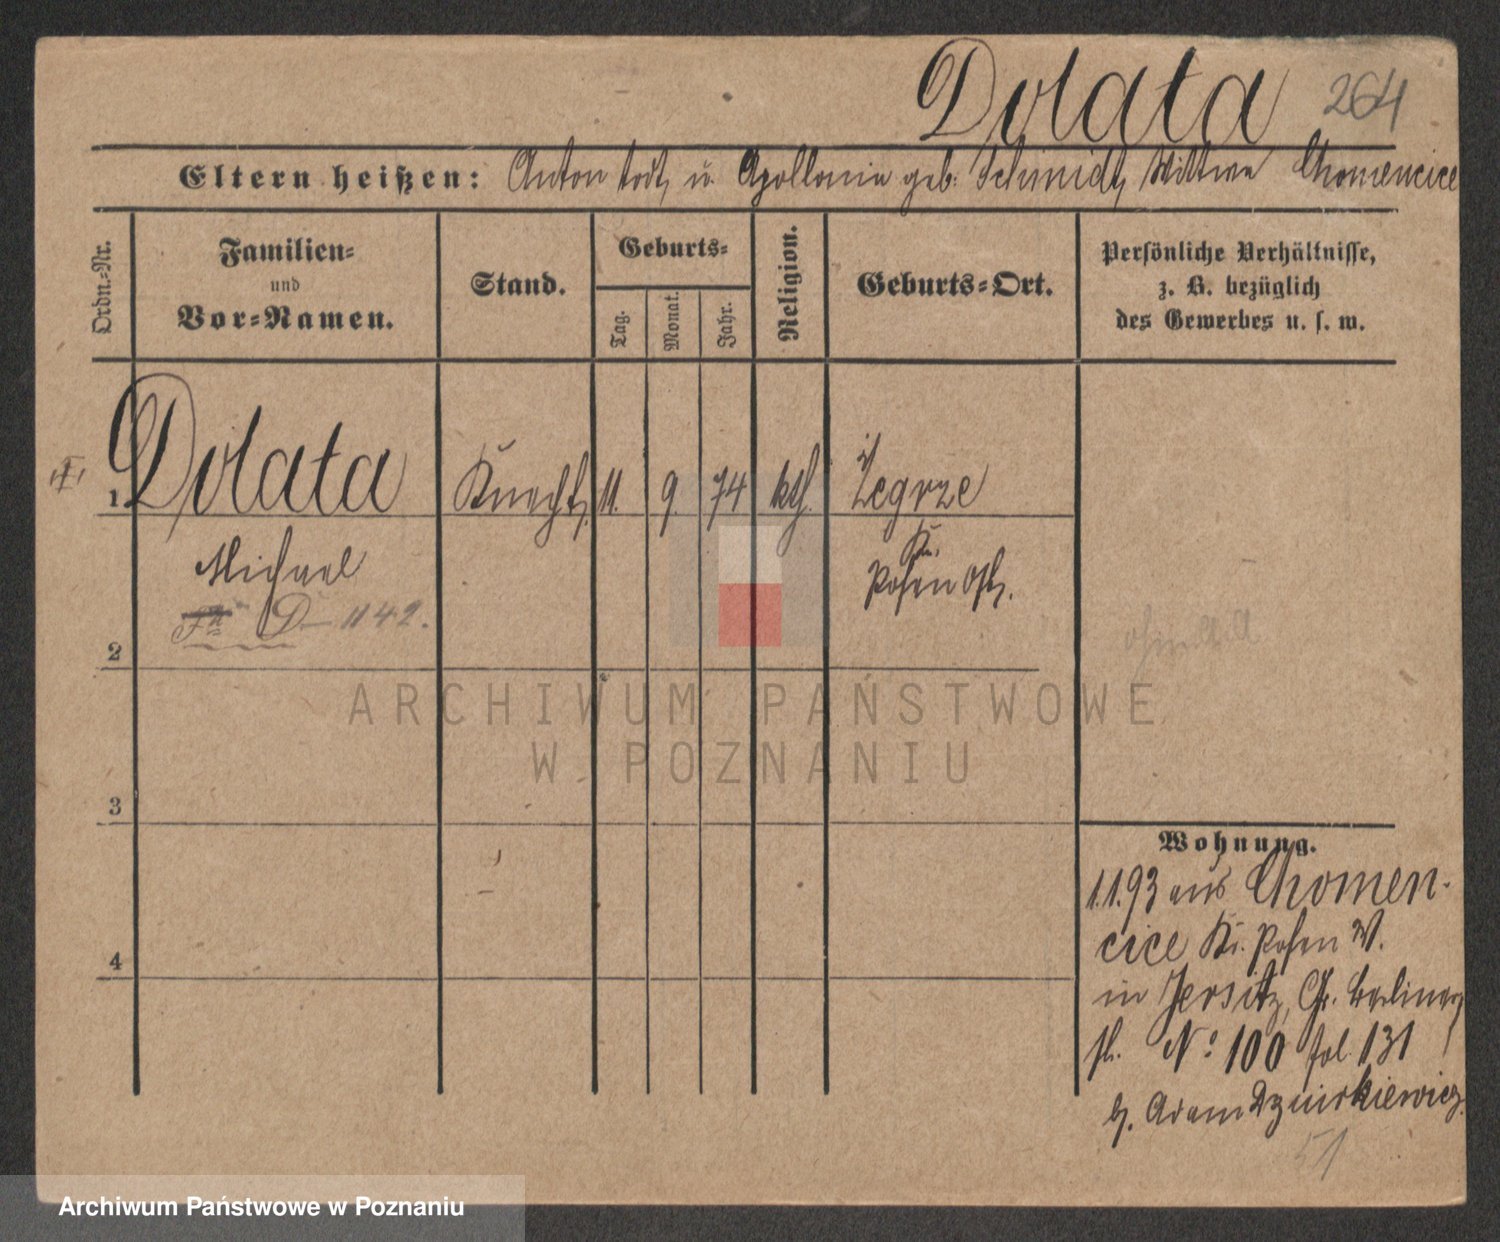 Dolata 264
Eltern heißen: Anton todt, u. Apollonia geb. Schmidt, Wittwe Chomencice
Ordn.=Nr.
Familien=
und
Vor=Namen.
Stand.
Geburts=
Tag.
Monat.
Jahr.
Religion.
Geburts=Ort.
Persönliche Verhältnisse,
z. B. bezüglich
des Gewerbes u. s. w.
1 Dolata Knecht, 11. 9. 74 kth. Żegrze
Michael
Kr.
Posen Ost.
D 1142.
2
3
4
ARCHIWUM PAŃSTWOWE
W POZNANIU
Wohnung.
1.1.93 aus Chomen-
cice Kr. Posen W.
in Jersitz, Gr. Berliner
str. No 100 fol. 131
b. Adam
51
Archiwum Państwowe w Poznaniu